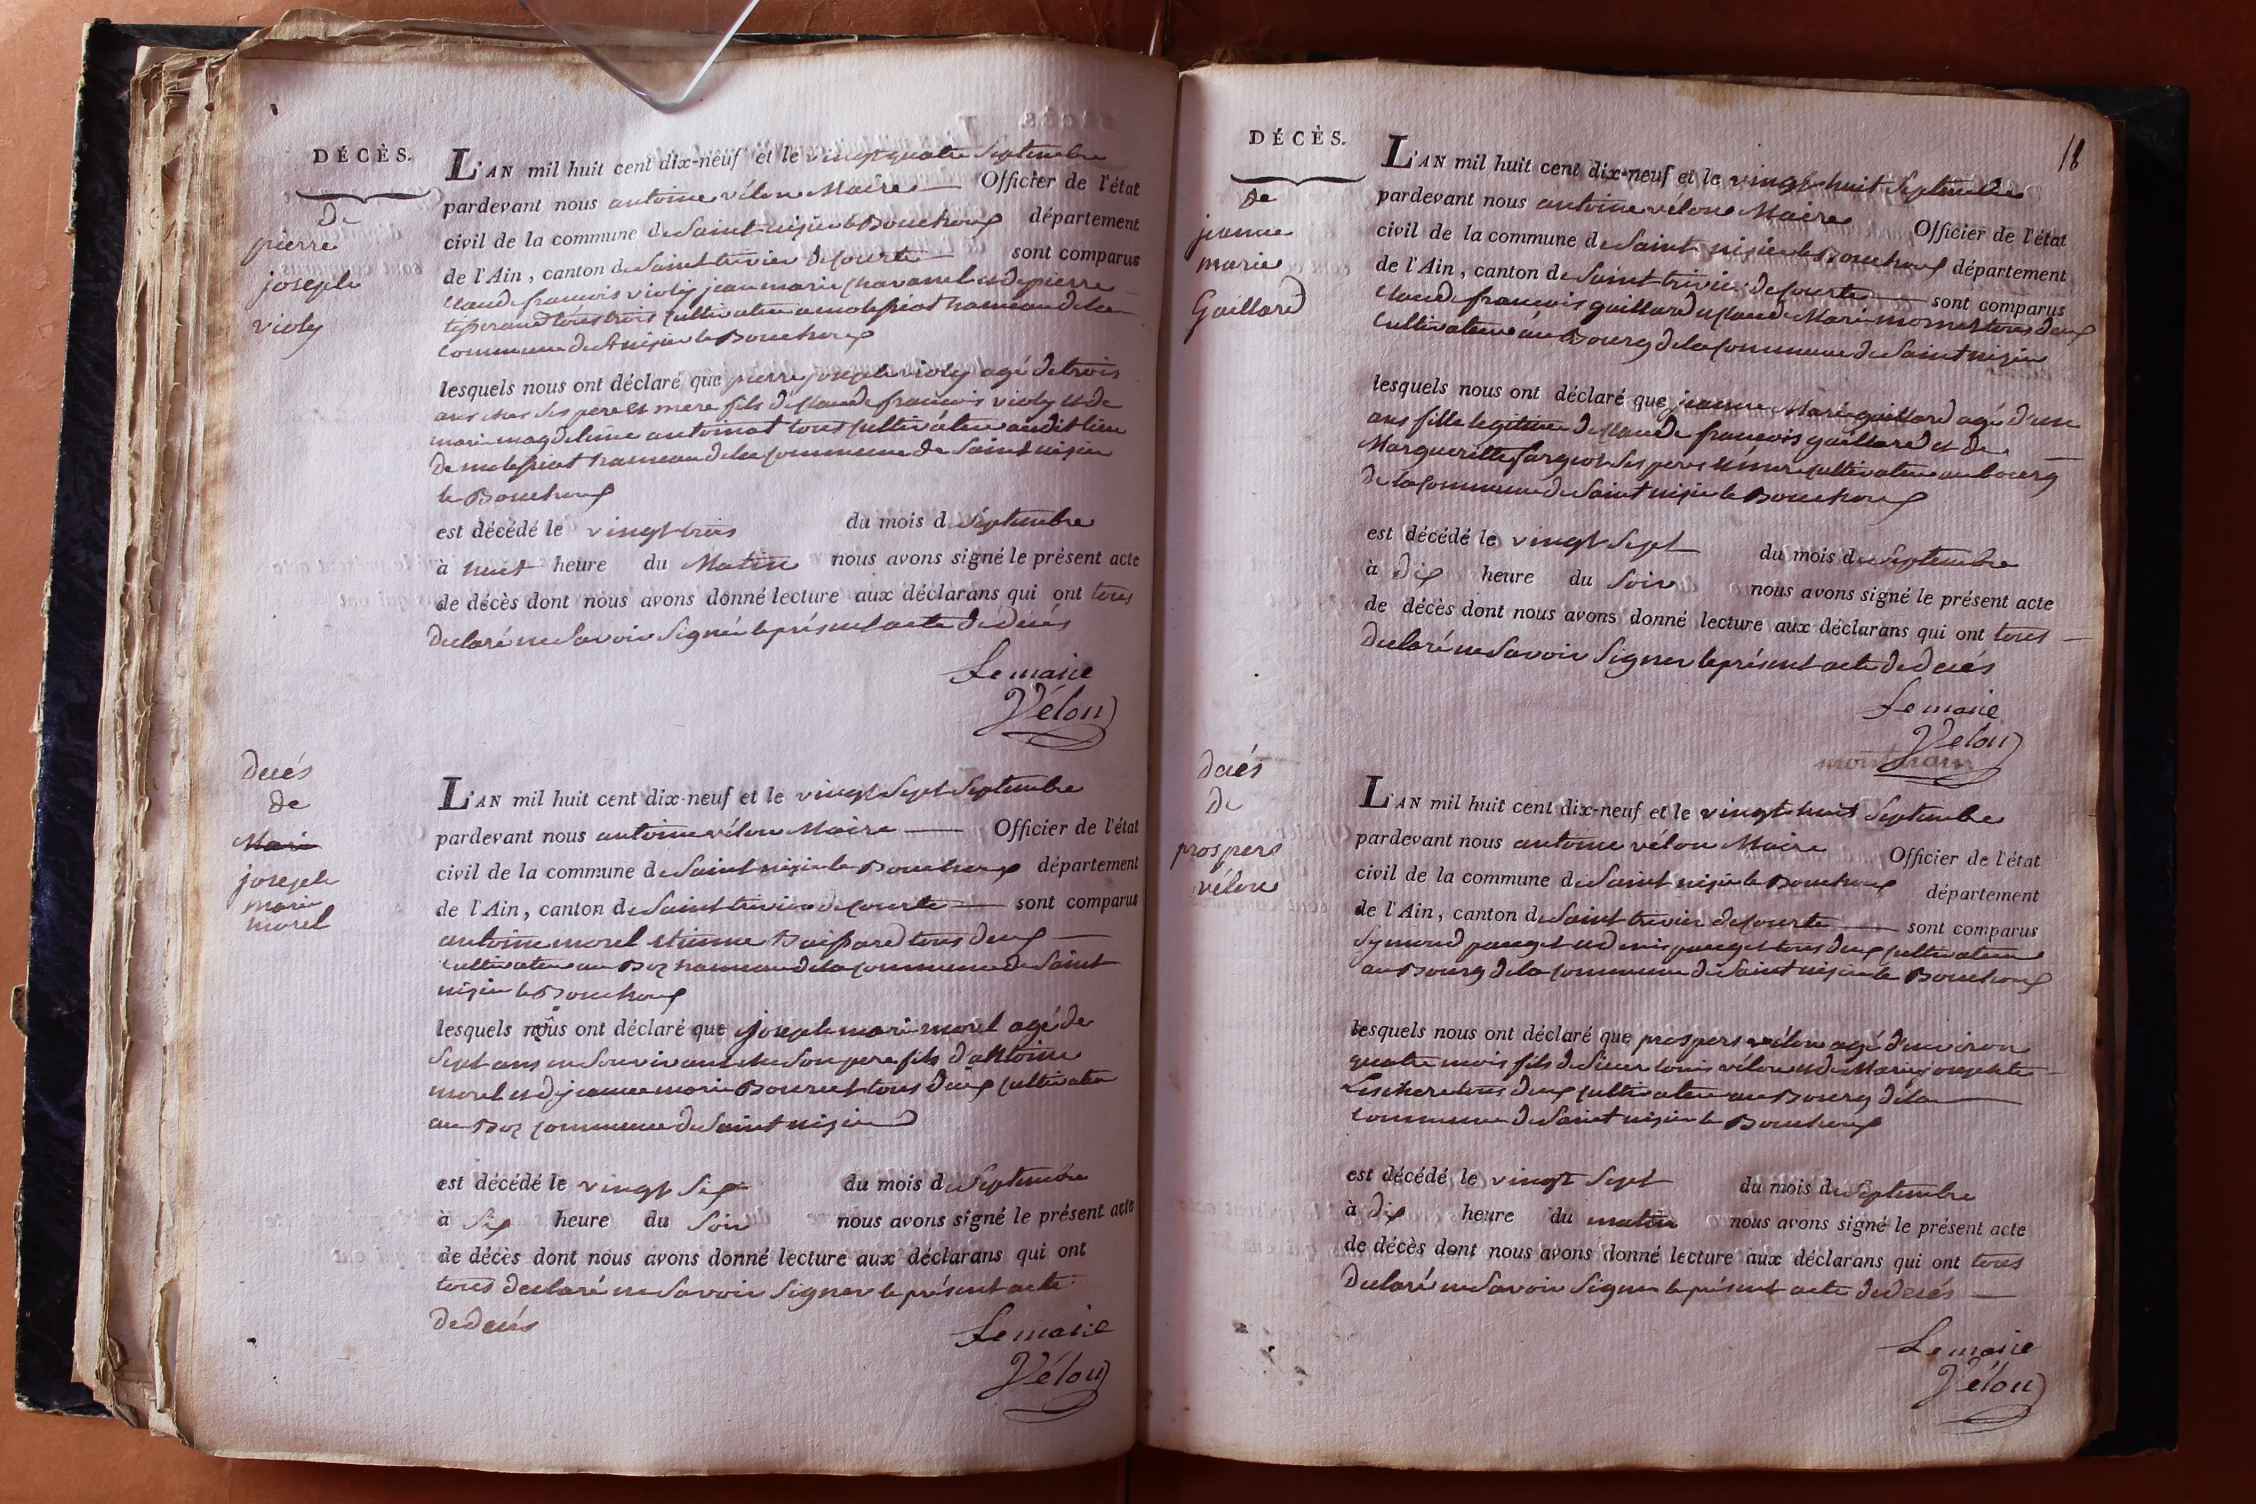 DÉCÈS.
De
pierre
joseph
violy
L'AN mil huit cent dix-neuf et le vingt quatre Septembre
pardevant nous antoine vélon Maire Officier de l'état
civil de la commune de Saint nizier le Bouchoux département
de l'Ain, canton de Saint trivier de courte sont comparus
claude francois violy jean marie chavanel et de pierre
tisserand tous trois cultivateur a hameau de la
commune de St nizier le Bouchoux
lesquels nous ont déclaré que pierre joseph violy agé de trois
ans ches ses pere et mere fils de claude francois violy et de
marie magdeleine antoinat tous cultivateur audit lieu
de hameau de la commune de Saint nizier
le Bouchoux
est décédé le vingt trois du mois de Septembre
à huit heure du Matin nous avons signé le présent acte
de décès dont nous avons donné lecture aux déclarans qui ont tous
declaré ne Savoir Signér le présent acte de décés
Le maire
Vélon
decés
de
Mari
joseph
marie
morel
L'AN mil huit cent dix-neuf et le vingt Sept Septembre
pardevant nous antoine vélon Maire Officier de l'état
civil de la commune de Saint nizier le Bouchoux département
de l'Ain, canton de Saint trivier de courte sont comparus
antoine morel etienne tous deux
cultivateur au Boz hameau de la commune de Saint
nizier le Bouchoux
lesquels nous ont déclaré que joseph marie morel agé de
Sept ans en Son vivant ches Son pere fils d'antoine
morel et de jeanne marie Bourcet tous deux cultivateur
au Boz commune de Saint nizier
est décédé le vingt Six du mois de Septembre
à Six heure du Soir nous avons signé le présent acte
de décès dont nous avons donné lecture aux déclarans qui ont
tous declaré ne Savoir Signer le présent acte
de décés
Le maire
Vélon
18
DÉCÈS.
De
jeanne
marie
Gaillard
L'AN mil huit cent dix-neuf et le vingt huit Septembre
pardevant nous antoine vélon Maire Officier de l'état
civil de la commune de Saint nizier le Bouchoux département
de l'Ain, canton de Saint trivier de courte sont comparus
claude francois gaillard et claude Marie monet tous deux
cultivateur au Bourg de la commune de Saint nizier
lesquels nous ont déclaré que jeanne Marie gaillard agé d'un
ans fille legitime de claude francois gaillard et de
Margueritte ses peres et mere cultivateur au bourg
de la commune de Saint nizier le Bouchoux
est décédé le vingt Sept du mois de Septembre
à dix heure du Soir nous avons signé le présent acte
de décès dont nous avons donné lecture aux déclarans qui ont tous
declaré ne Savoir Signer le présent acte de decés
Le maire
Vélon
decés
de
prospere
vélon
L'AN mil huit cent dix-neuf et le vingt huit Septembre
pardevant nous antoine vélon Maire Officier de l'état
civil de la commune de Saint nizier le Bouchoux département
de l'Ain, canton de Saint trivier de courte sont comparus
Symond pauget et denis pauget tous deux cultivateur
au Bourg de la commune de Saint nizier le Bouchoux
lesquels nous ont déclaré que prospere vélon agé d'environ
quatre mois fils de Sieur louis vélon et de Marie
tous deux cultivateur au Bourg de la
commune de Saint nizier le Bouchoux
est décédé le vingt Sept du mois de Septembre
à dix heure du matin nous avons signé le présent acte
de décès dont nous avons donné lecture aux déclarans qui ont tous
declaré ne Savoir Signer le présent acte de decés
Le maire
Vélon